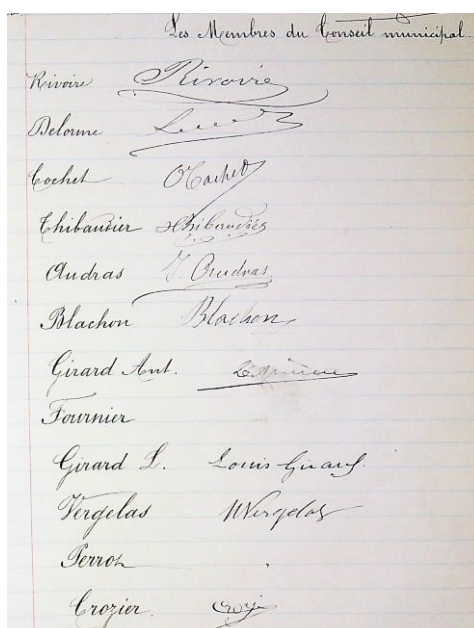 Les Membres du Conseil municipal.
Rivoire Rivoire
Delorme
Cochet Cochet
Thibaudier Thibaudier
Audras J. Audras
Blachon Blachon
Girard Ant.
Fournier
Girard L. Louis Girard
Vergelas Vergelas
Perron
Crozier